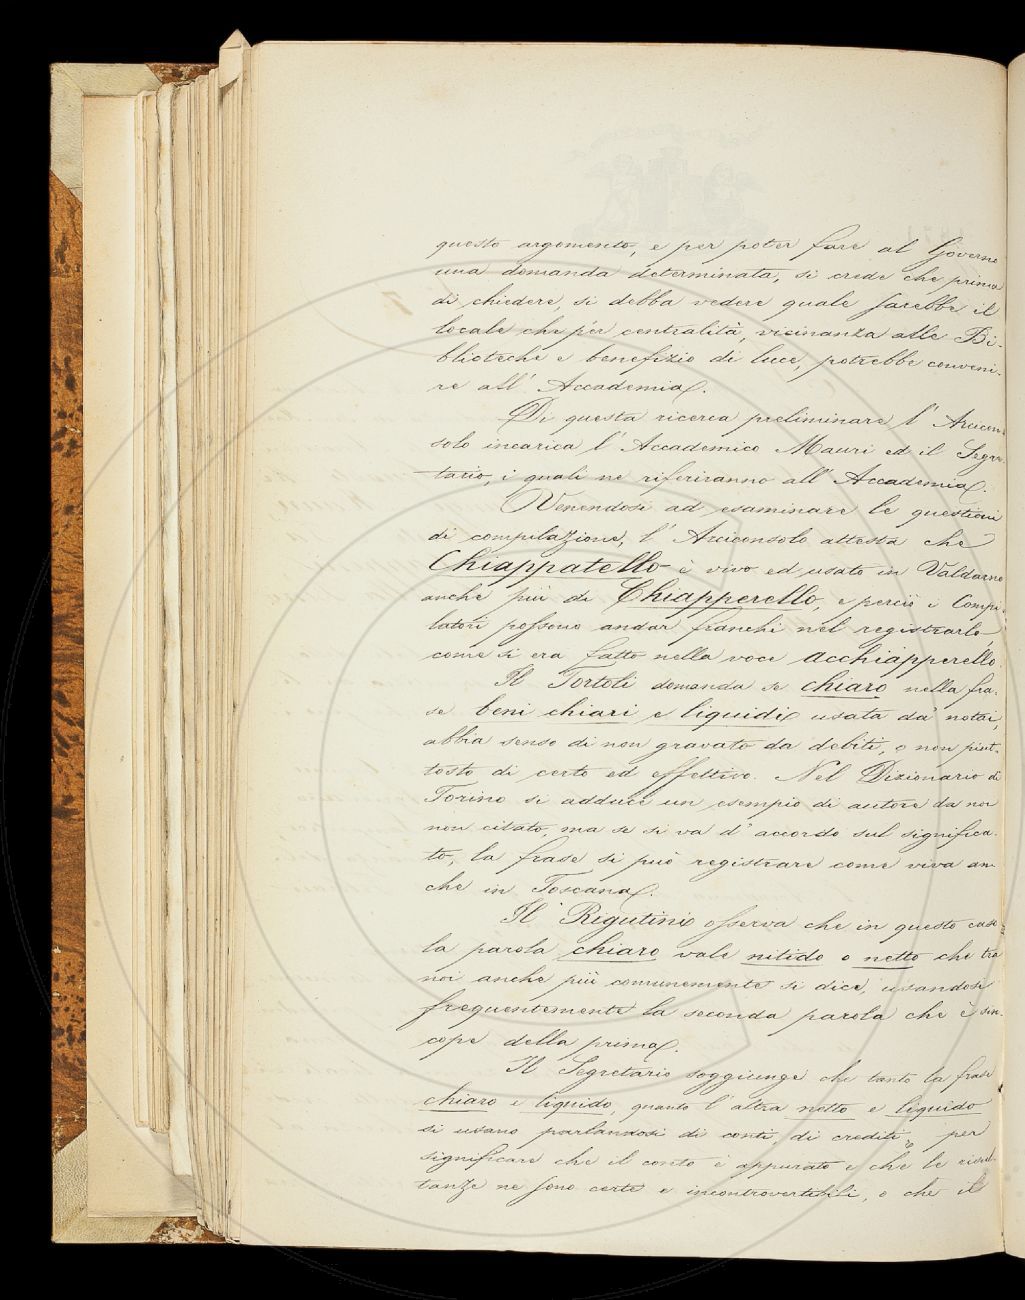 questo argomento, e per poter fare al Governo
una domanda determinata, si crede che prima
di chiedere, si debba vedere quale sarebbe il
locale che per centralità, vicinanza alle Bi-
blioteche e benefizio di luce, potrebbe conveni-
re all' Accademia.
Di questa ricerca preliminare l' Arcicon-
solo incarica l' Accademico Mauri ed il Segre-
tario, i quali ne riferiranno all' Accademia.
Venendosi ad esaminare le questioni
di compilazione, l' Arciconsolo attesta che
Chiappatello è vivo ed usato in Valdarno
anche più di Chiapperello, e perciò i Compi-
latori possono andar franchi nel registrarlo,
come si era fatto nella voce acchiapperello.
Il Tortoli domanda se chiaro nella fra-
se beni chiari e liquidi usata da' notai,
abbia senso di non gravato da debiti, o non piut-
tosto di certo ed effettivo. Nel Dizionario di
Torino si adduce un esempio di autore da noi
non citato, ma se si va d' accordo sul significa-
to, la frase si può registrare come viva an-
che in Toscana.
Il Rigutini osserva che in questo caso
la parola chiaro vale nitido o netto che tra
noi anche più comunemente si dice, usandosi
frequentemente la seconda parola che è sin-
cope della prima.
Il Segretario soggiunge che tanto la frase
chiaro e liquido, quanto l' altra netto e liquido
si usano parlandosi di conti, di crediti &c per
significare che il conto è appurato e che le risul-
tanze ne sono certe e incontrovertibili, o che il